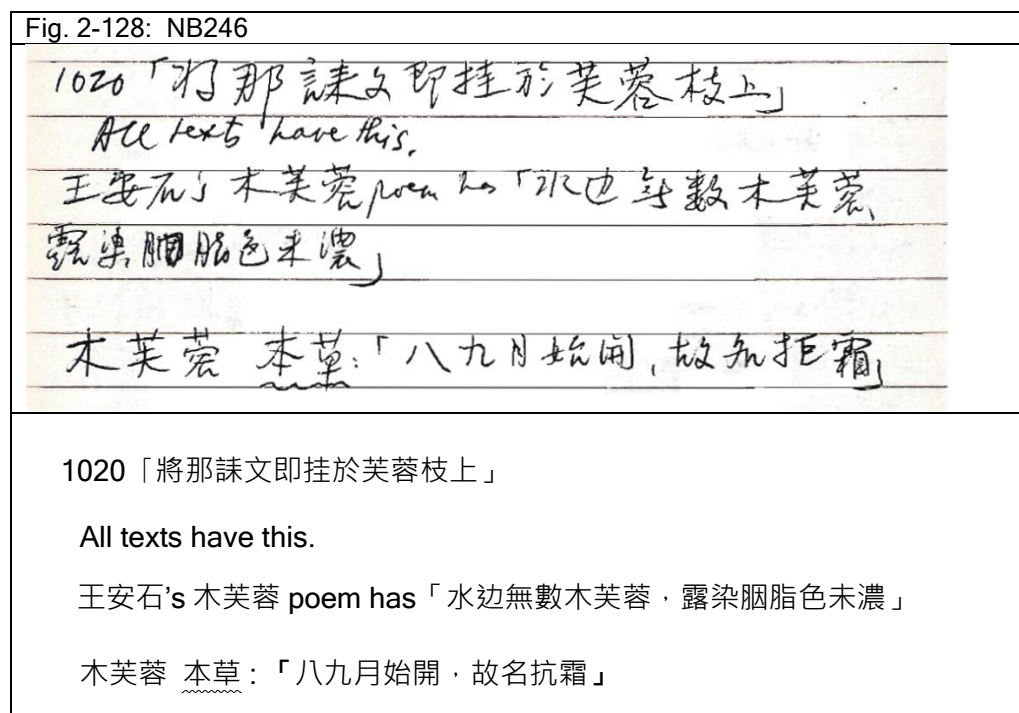 Fig. 2-128: NB246
1020「将那誄文即挂於芙蓉枝上」
All texts have this.
王安石's 木芙蓉 poem has「水边無數木芙蓉
露染胭脂色未濃」
木芙蓉 本草:「八九月始開,故名拒霜」
1020「將那誄文即挂於芙蓉枝上」
All texts have this.
王安石's 木芙蓉 poem has「水边無數木芙蓉,露染胭脂色未濃」
木芙蓉 本草:「八九月始開,故名抗霜」